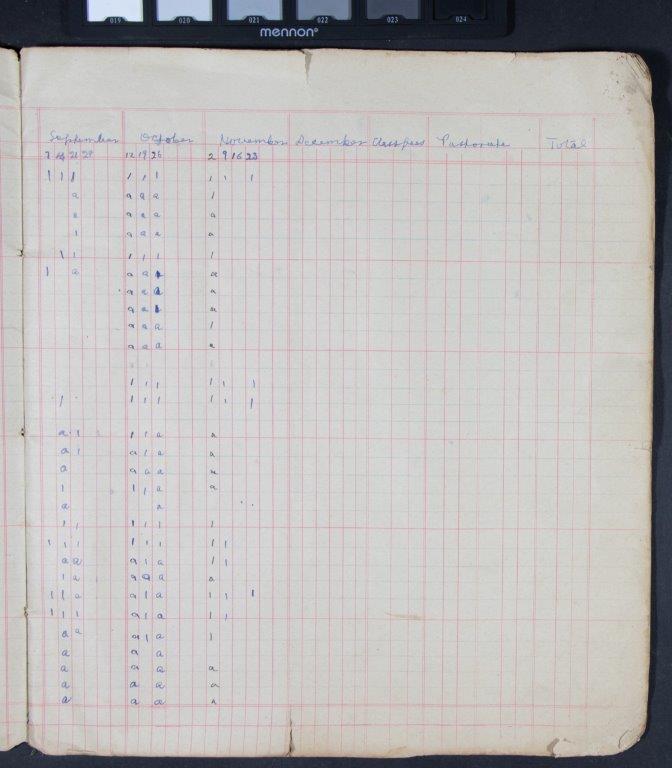 019 020 021 022 023 024
mennon®
September October November December Class fees Pastorate Total
7 14 21 28 12 19 26 2 9 16 23
1 1 1 1 1 1 1 1 1
a a a a 1
a a a a a
1 a a a a
1 1 1 1 1 1
1 a a a a
a a a
a a
a a a 1
a a a a
1 1 1 1 1 1
1 1 1 1 1 1 1
a 1 1 1 a a
a 1 a 1 a a
a a a a a
1 1 1 a a
a a
1 1 1 1 1 1
1 1 1 1 1 1 1 1
a a a 1 a 1 1
1 a a a a a
1 1 a a 1 a 1 1 1
1 1 1 a 1 a 1 1
a a a 1 a 1
a a a
a a a a
a a a a
a a a a